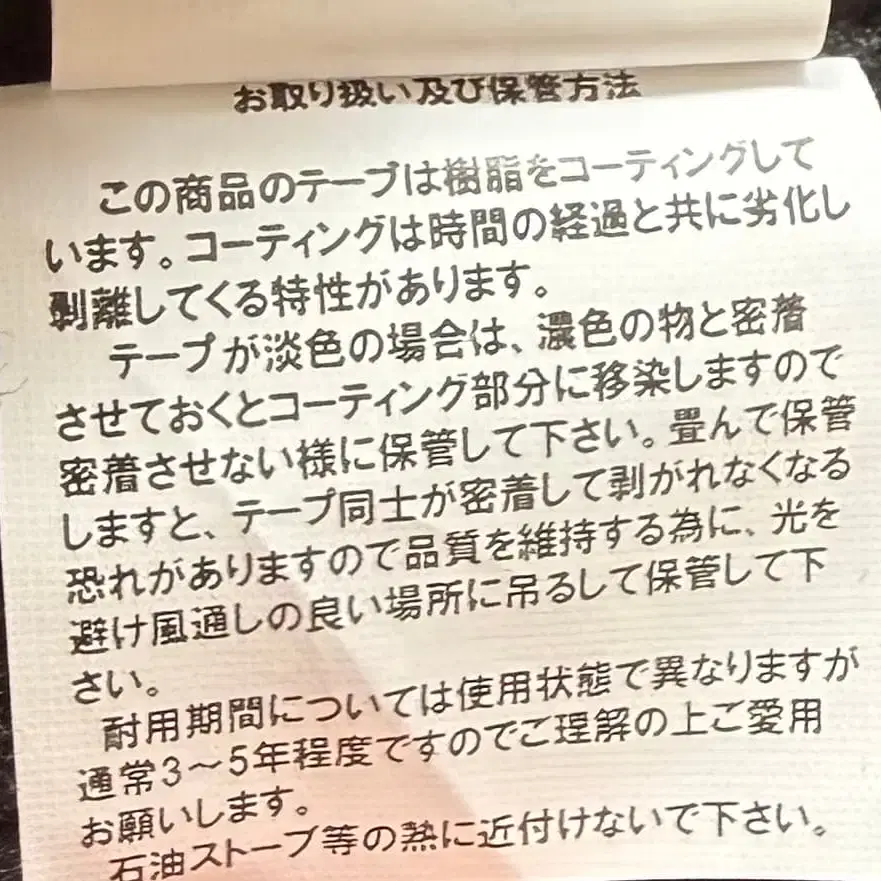 お取り扱い及び保管方法
この商品のテープは樹脂をコーティングして
います。コーティングは時間の経過と共に劣化し
剥離してくる特性があります。
テープが淡色の場合は、濃色の物と密着
させておくとコーティング部分に移染しますので
密着させない様に保管して下さい。畳んで保管
しますと、テープ同士が密着して剥がれなくなる
恐れがありますので品質を維持する為に、光を
避け風通しの良い場所に吊るして保管して下
さい。
耐用期間については使用状態で異なりますが
通常3〜5年程度ですのでご理解の上ご愛用
お願いします。
石油ストーブ等の熱に近付けないで下さい。